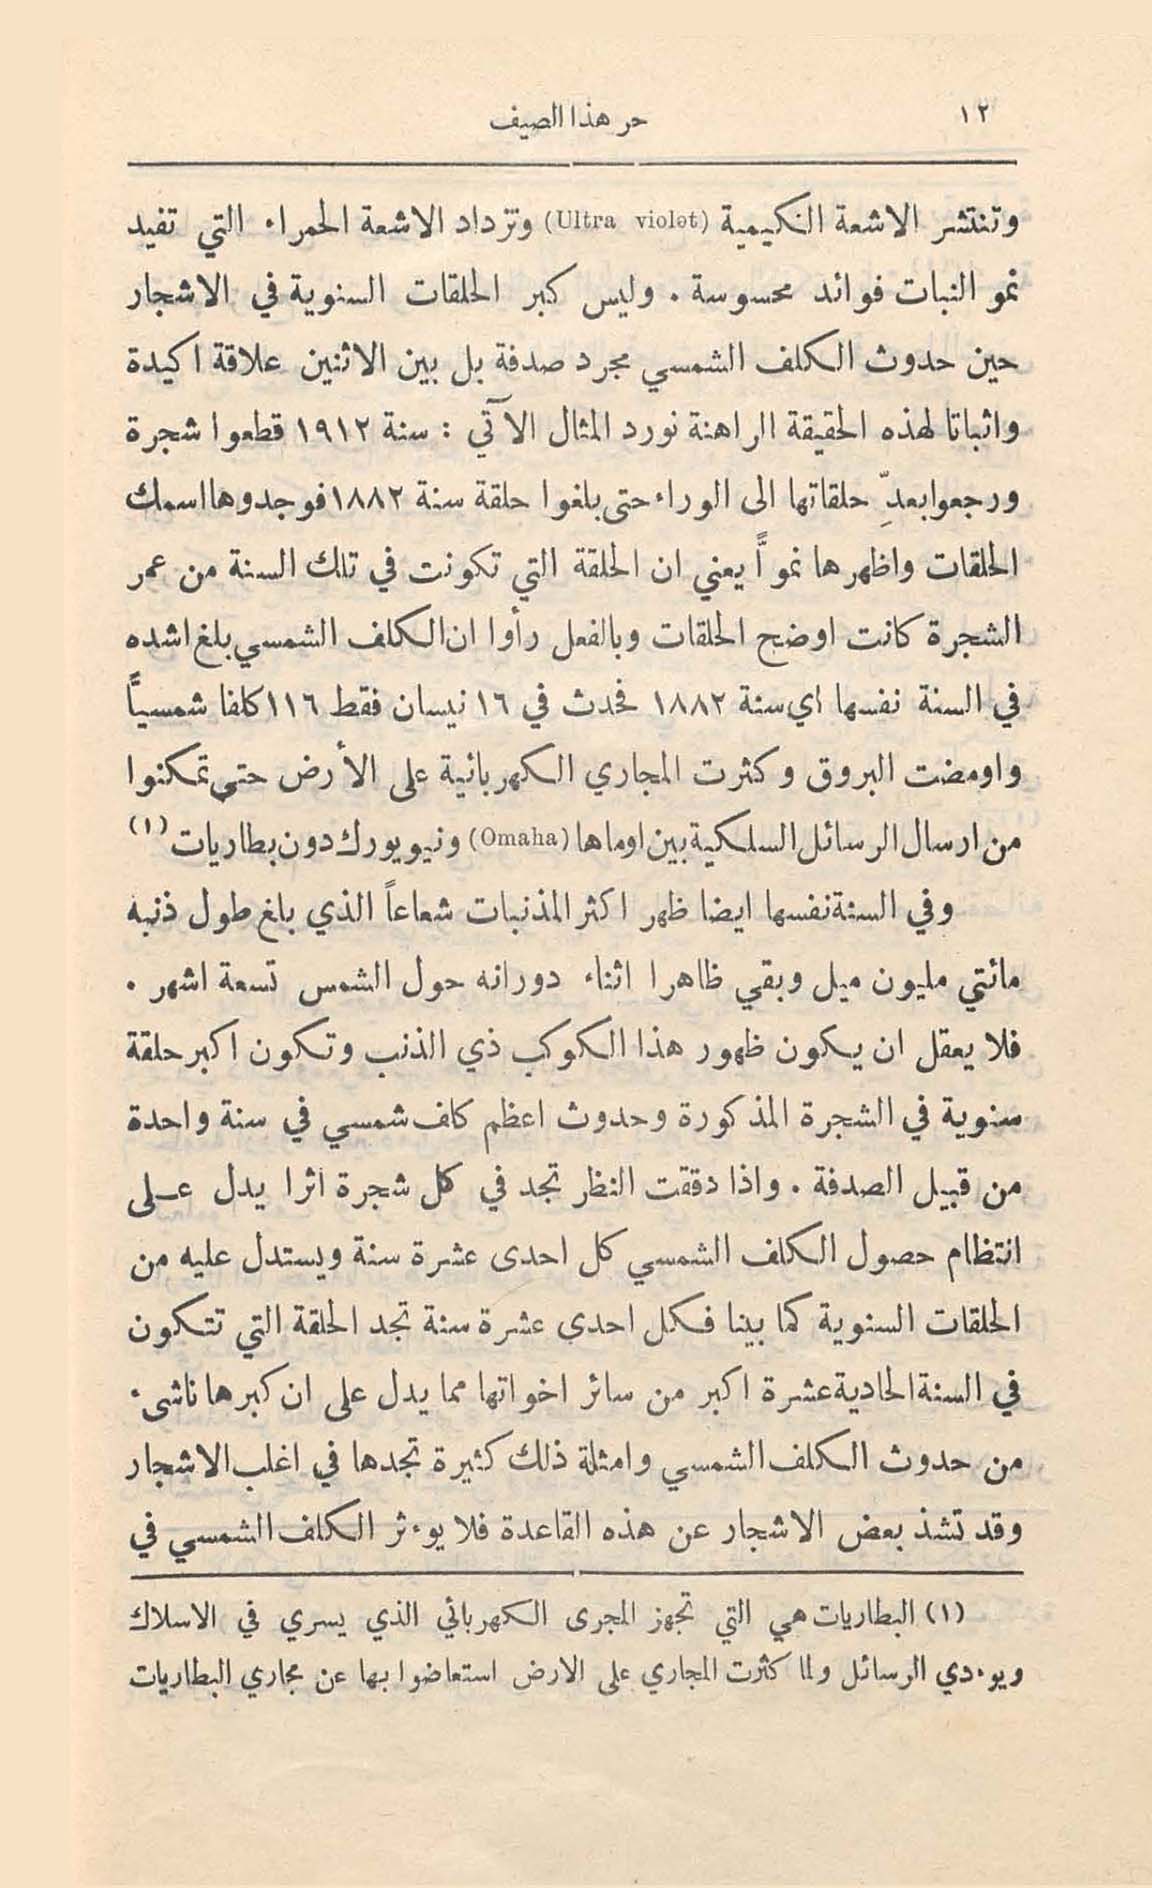 ١٢
حر هذا الصيف
وتنتشر الاشعة الكيمية (Ultra violet) وتزداد الاشعة الحمراء التي تفيد
نمو النبات فوائد محسوسة . وليس كبر الحلقات السنوية في الاشجار
حين حدوث الكلف الشمسي مجرد صدفة بل بين الاثنين علاقة اكيدة
واثباتا لهذه الحقيقة الراهنة نورد المثال الآتي : سنة ١٩١٢ قطعوا شجرة
ورجعوا بعدِّ حلقاتها الى الوراء حتى بلغوا حلقة سنة ١٨٨٢ فوجدوها اسمك
الحلقات واظهرها نمواً يعني ان الحلقة التي تكونت في تلك السنة من عمر
الشجرة كانت اوضح الحلقات وبالفعل رأوا ان الكلف الشمسي بلغ اشده
في السنة نفسها اي سنة ١٨٨٢ فحدث في ١٦ نيسان فقط ١١٦ كلفا شمسياً
واومضت البروق وكثرت المجاري الكهربائية على الأرض حتى تمكنوا
من ارسال الرسائل السلكية بين اوماها (Omaha) ونيويورك دون بطاريات (١)
وفي السنة نفسها ايضا ظهر اكثر المذنبات شعاعاً الذي بلغ طول ذنبه
مائتي مليون ميل وبقي ظاهرا اثناء دورانه حول الشمس تسعة اشهر .
فلا يعقل ان يكون ظهور هذا الكوكب ذي الذنب وتكون اكبر حلقة
سنوية في الشجرة المذكورة وحدوث اعظم كلف شمسي في سنة واحدة
من قبيل الصدفة . واذا دققت النظر تجد في كل شجرة اثرا يدل على
انتظام حصول الكلف الشمسي كل احدى عشرة سنة ويستدل عليه من
الحلقات السنوية كما بينا فكل احدى عشرة سنة تجد الحلقة التي تتكون
في السنة الحادية عشرة اكبر من سائر اخواتها مما يدل على ان كبرها ناشىء
من حدوث الكلف الشمسي وامثلة ذلك كثيرة تجدها في اغلب الاشجار
وقد تشذ بعض الاشجار عن هذه القاعدة فلا يوءثر الكلف الشمسي في
(١) البطاريات هي التي تجهز المجرى الكهربائي الذي يسري في الاسلاك
ويوءدي الرسائل ولما كثرت المجاري على الارض استعاضوا بها عن مجاري البطاريات